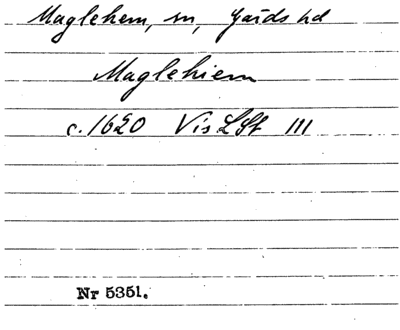 Maglehem, sn, Gärds hd
Maglehiem
c. 1620 Vis LSt III
Nr 5351.